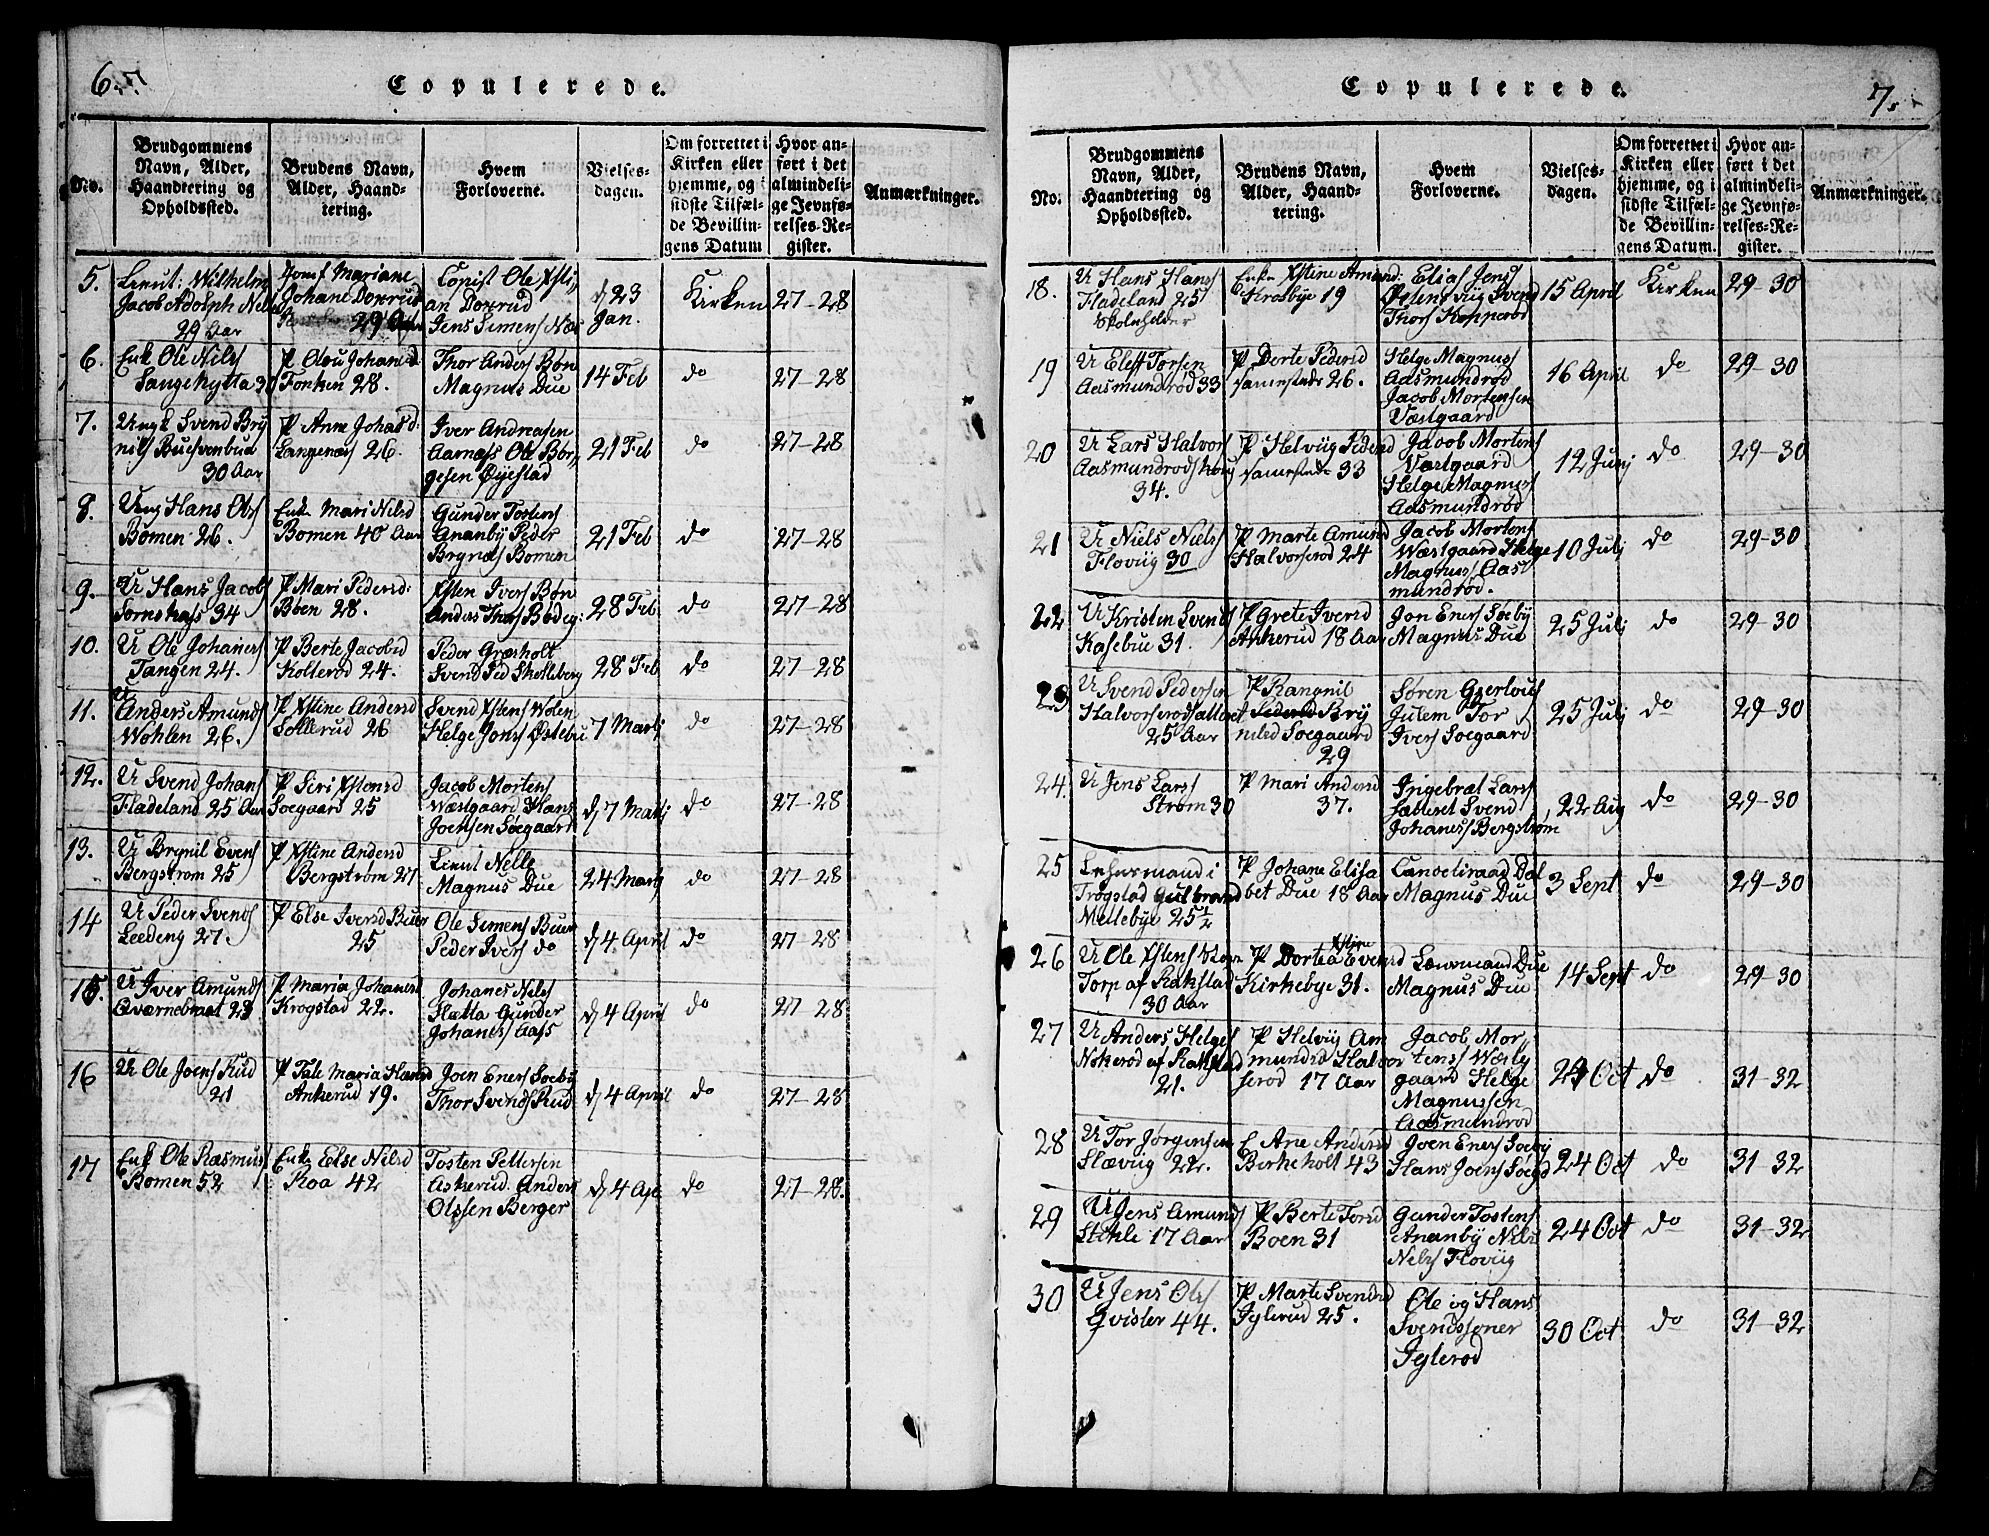 6.
Copulerede.
No.
Brudgommens
Navn, Alder,
Haandtering og
Opholdssted.
Brudens Navn,
Alder, Haand-
tering.
Hvem
Forloverne.
Vielses-
dagen.
Om forrettet i
Kirken eller
hjemme, og i
sidste Tilfæl-
de Bevillin-
gens Datum
Hvor an-
ført i det
almindeli-
ge Jevnfø-
relses-Re-
gister.
Anmærkninger.
5.
Lieut: Wilhelm
Jacob Adolph Nelle
29 Aar
Jomf Mariane
Johane Doxrud
29 Aar
Copist Ole Xsti
an Doxrud
Jens Simens Næs
d 23
Jan.
Kirken
27-28
6.
Enk Ole Nils
Langehytta 30
P Olou Johansd
Fonken 28.
Thor Anders Bøn
Magnus Due
14 Feb
do
27-28
7.
Ungk Svend Bry
nils
30 Aar
P Anne Johasd:
Langenæs 26.
Iver Andreasen
Aarnæss Ole Bør-
gesen Øyestad
21 Feb
do
27-28
8.
Ung Hans Ols
Bomen 26.
Enke Mari Nilsd
Bomen 40 Aar
Gunder Tostens
Ananby Peder
Brynils Bomen
21 Feb
do
27-28
9.
U Hans Jacobs
34
P Mari Pedersd:
Bøen 28.
Xsten Ivers Bøn
Anders Thors Bødeg:
28 Feb
do
27-28
10.
U Ole Johanes
Tangen 24.
P Berte Jacobsd
Kolterød 24.
Peder Græsholt
Svend Ped Skolleberg
28 Feb
do
27-28
11.
U
Anders Amunds
Wohlen 26.
P Xstine Andersd
Sollerud 26
Svend Xstens Wolen
Helge Jons Østebu
7 Martj
do
27-28
12.
U Svend Johans
Fladeland 25 Aar
P Siri Xstensd
Soegaard 25
Jacob Mortens
Wæstgaard Hans
Joensen Soegaard
d 7 Martj
do
27-28
13.
U Brynil Evens
Bergstrøm 25
P Xstine Andersd
Bergstrøm 27
Lieut Nelle
Magnus Due
24 Martj
do
27-28
14
U Peder Svends
Leedeng 27.
P Else Iversd Buer
25
Ole Simens Buer
Peder Ivers do
d 4 April
do
27-28
15.
U Iver Amunds
Qværnebraat 23
P Maria Johanesd
Krogstad 22.
Johanes Nils
Slætta Gunder
Johanes Aass
d 4 April
do
27-28
16
U Ole Joens Rud
21
P Tale Maria Hansd
Ankerud 19.
Joen Eners Soeby
Thor Svends Rud
d 4 April
do
27-28
17
Enk Ole Rasmus
Bomen 52
Enke Else Nilsd
Roa 42
Tosten Pettersen
Askerud. Anders
Olssen Berger
d 4 Apr
do
27-28.
7.
Copulerede.
No.
Brudgommens
Navn, Alder,
Haandtering og
Opholdssted.
Brudens Navn,
Alder, Haand-
tering.
Hvem
Forloverne.
Vielses-
dagen.
Om forrettet i
Kirken eller
hjemme, og i
sidste Tilfæl-
de Bevillin-
gens Datum.
Hvor an-
ført i det
almindeli-
ge Jevnfø-
relses-Re-
gister.
Anmærkninger.
18.
U Hans Hans
Fladeland 25
Skoleholder
Enke Xstine Amund:
Krosbye 19
Elias Jens
Svend
Thors Kopperød
15 April
Kirken
29-30
19
U Eleff Torsen
Aasmundrød 33
P Dorte Pedersd
samestede 26.
Helge Magnus
Aasmundrød
Jacob Mortensen
Væstgaard
16 April
do
29-30
20
U Lars Halvors
Aasmundrøds haug
34.
P Helviig Pedersd
samestede 33
Jacob Mortens
Væstgaard
Helge Magnus
Aasmundrød
12 Junj
do
29-30
21
U Niels Niels
Floviig 30
P Marte Amund
Halvorserød 24
Jacob Mortens
Wæstgaard Helge
Magnus Aas
mundrød.
10 Julj
do
29-30
22
U Kristen Svends
Kasebue 31.
P Grete Iversd
Ankerud 18 Aar
Jon Eners Soeby
Magnus Due
25 Julj
do
29-30
23
U Svend Pedersen
Halvorserødsallaet
25 Aar
P Rangnil
Pedersd Bry
nilsd Soegaard
29
Søren Gjerlous
Julem Tor
Ivers Soegaard
25 Julj
do
29-30
24.
U Jens Lars
Strøm 30
P Mari Andersd
37.
Ingebræt Lars
Sætteret Svend
Johanes Bergstrøm
22 Aug
do
29-30
25
Lehnsmand i
Trøgstad Gulbrand
Mellebye 25½
P Johane Elisa
bet Due 18 Aar
Canceliraad Dal
Magnus Due
3 Sept
do
29-30
26
U Ole Xstens
Torp af Rakstad
30 Aar
P Dortea Xstine Eversd
Kirkebye 31.
Lænsmand Due
Magnus Due
14 Sept
do
29-30
27
U Anders Helges
Nokerød af Rakstad
21.
P Helviij Am
mundsd Halvor
serød 17 Aar
Jacob Mor-
tens Wæst
gaard Helge
Magnussen
Aasmundrød
24 Oct
do
31-32
28
U Tor Jørgensen
Slæviig 22.
E Ane Andersd
Birkeholt 43
Joen Eners Soeby
Hans Joens Soegd
24 Oct
do
31-32
29
U Jens Amunds
Stohle 17 Aar
P Berte Torsd
Boen 31
Gunder Tostens
Ananby Nils
Nils Floviig
24 Oct
do
31-32
30
U Jens Ols
Qvisler 44.
P Marte Svendsd
Iglerud 25.
Ole og Hans
Svendssøner
Iglerød
30 Oct
do
31-32